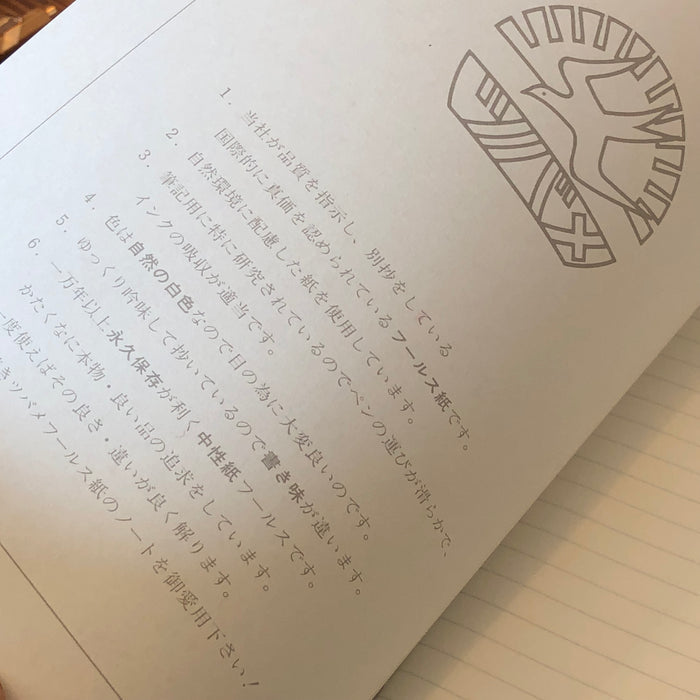 1. 当社が品質を指示し、別抄をしている
国際的に真価を認められているフールス紙です。
2. 自然環境に配慮した紙を使用しています。
3. 筆記用に特に研究されているのでペンの運びが滑らかで、
インクの吸収が適当です。
4. 色は自然の白色なので目の為に大変良いのです。
5. ゆっくり吟味して抄いているので書き味が違います。
6. 一万年以上永久保存が利く中性紙フールスです。
かたくなに本物・良い品の追求をしています。
一度使えばその良さ・違いが良く解ります。
きツバメフールス紙のノートを御愛用下さい!